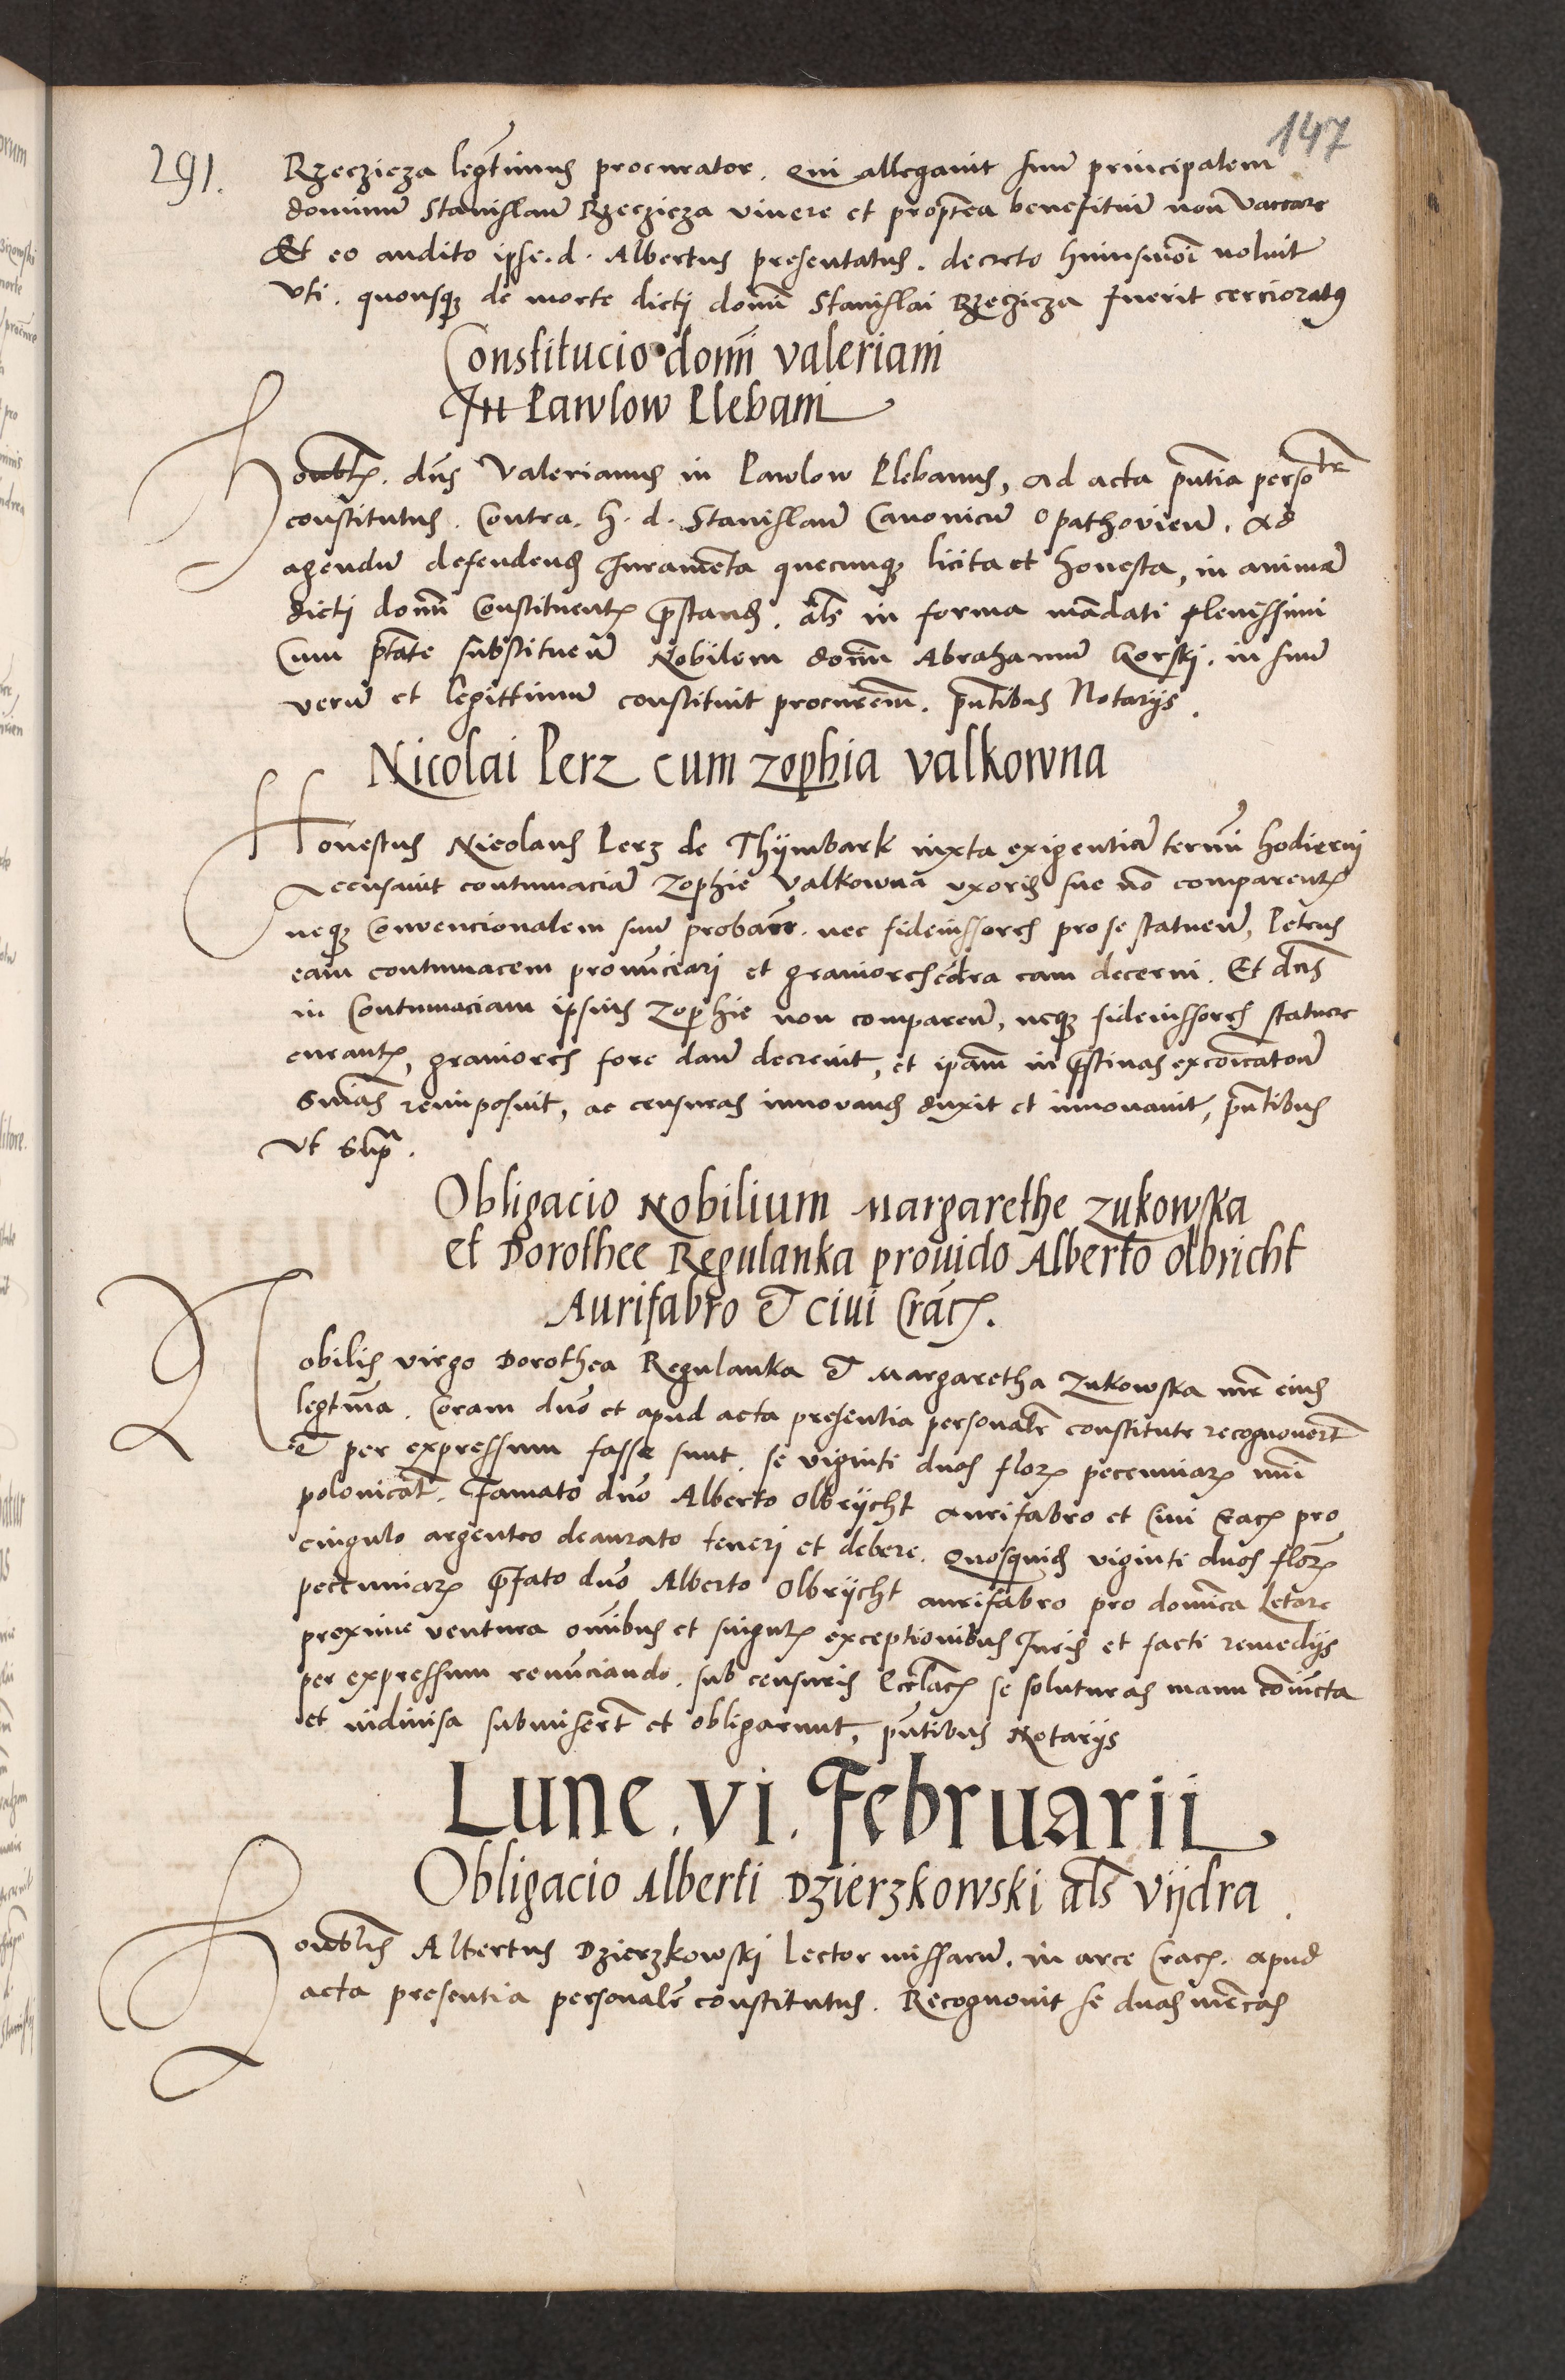 147
291.
Rzeczicza legttimus procurator. Qui allegavit suu͂ principalem
dominu͂ Stanislau͂ Rzeczicza vivere et propterea beneficiu͂ non vaccare
Et eo audito ipse. d. Albertus presentatus. decreto huiusmoi noluit
Uti. quousq; de morte dicti domi͂ Stanislai Rzeczicza fuerit cercioratus
Constitucio domi͂ valeriani
In Pawlow Plebani
Honorabilis. dn͂s Valerianus in Pawlow Plebanus, Ad acta pn͂tia persotr
constitutus. Contra. h. d. Stanislau͂ Canonicu͂ Opathovien͂. Ad
agendu͂ defendend Iuramenta quecunq; licita et honesta, in anima͂
dicti domi͂ Constituentis p͂stand. al͂s in forma ma͂dati plenissimi
Cum p͂tate substituen͂ Nobilem domi͂ Abrahamu͂ Gorski. in suu͂
veru͂ et legittimu͂ constituit procurem͂. pn͂tibus Notariis.
Nicolai Perz cum zophia valkowna
Honestus Nicolaus Perz de Thijmbark iuxta exigentia͂ termi͂ hodierni
Accusavit contumacia͂ Zophie Valkowna uxoris sue no͂ comparentis
neq; Convencionalem suu͂ probare. nec fideiussores pro se statuen͂, Petens
eam contumacem pronu͂ciari et graviores co͂tra eam decerni. Et dn͂s
in Contumaciam ipsius Zophie non comparen͂, neq; fideiussores statuere
curantis, graviores fore dan͂ decrevit, et ipam͂ in p͂stinas exco͂icatou͂
Sn͂ias reimposuit, ac censuras innovand duxit et innovavit, pn͂tibus
Ut Sup͂.
Obligacio Nobilium Margarethe Zukowska
et Dorothee Regulanka provido Alberto olbricht
Aurifabro & civi Crac͂.
Nobilis virgo Dorothea Regulanka & Margaretha Zukowska mr͂ eius
legtima. Coram dn͂o et apud acta presentia personalr͂ constitute recognovert͂
& per expressum fasse sunt. se viginti duos flor͂ peccuniar͂ mi͂
polonicat͂. Famato dn͂o Alberto Olbrijcht aurifabro et Civi Crac͂ pro
cingulo argenteo deaurato teneri et debere. Quosquid viginti duos flor͂
peccuniar͂ p͂fato dn͂o Alberto Olbrijcht aurifabro pro domi͂ca Letare
proxime ventura om͂ibus et singul͂ exceptionibus Iuris et facti remediis
per expressum renu͂ciando. sub censuris Eccl͂ac͂ se soluturas manu coniu͂cta
et indivisa submisert͂ et obligarunt, pn͂tibus Notariis
Lune. vi. Februarii
Obligacio Alberti Dzierzkowski al͂s vijdra.
Honorabilis Albertus Dzierzkowski Lector missaru͂. in arce Crac͂. apud
acta presentia personalr͂ constitutus. Recognovit se duas me͂cas